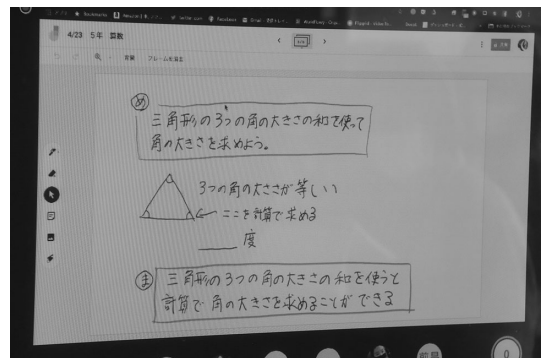 4/23 5年 算数
背景 フレームを消去
め
三角形の3つの角の大きさの和を使って
角の大きさを求めよう。
3つの角の大きさが等しい
ここを計算で求める
度
ま
三角形の3つの角の大きさの和を使うと
計算で角の大きさを求めることができる